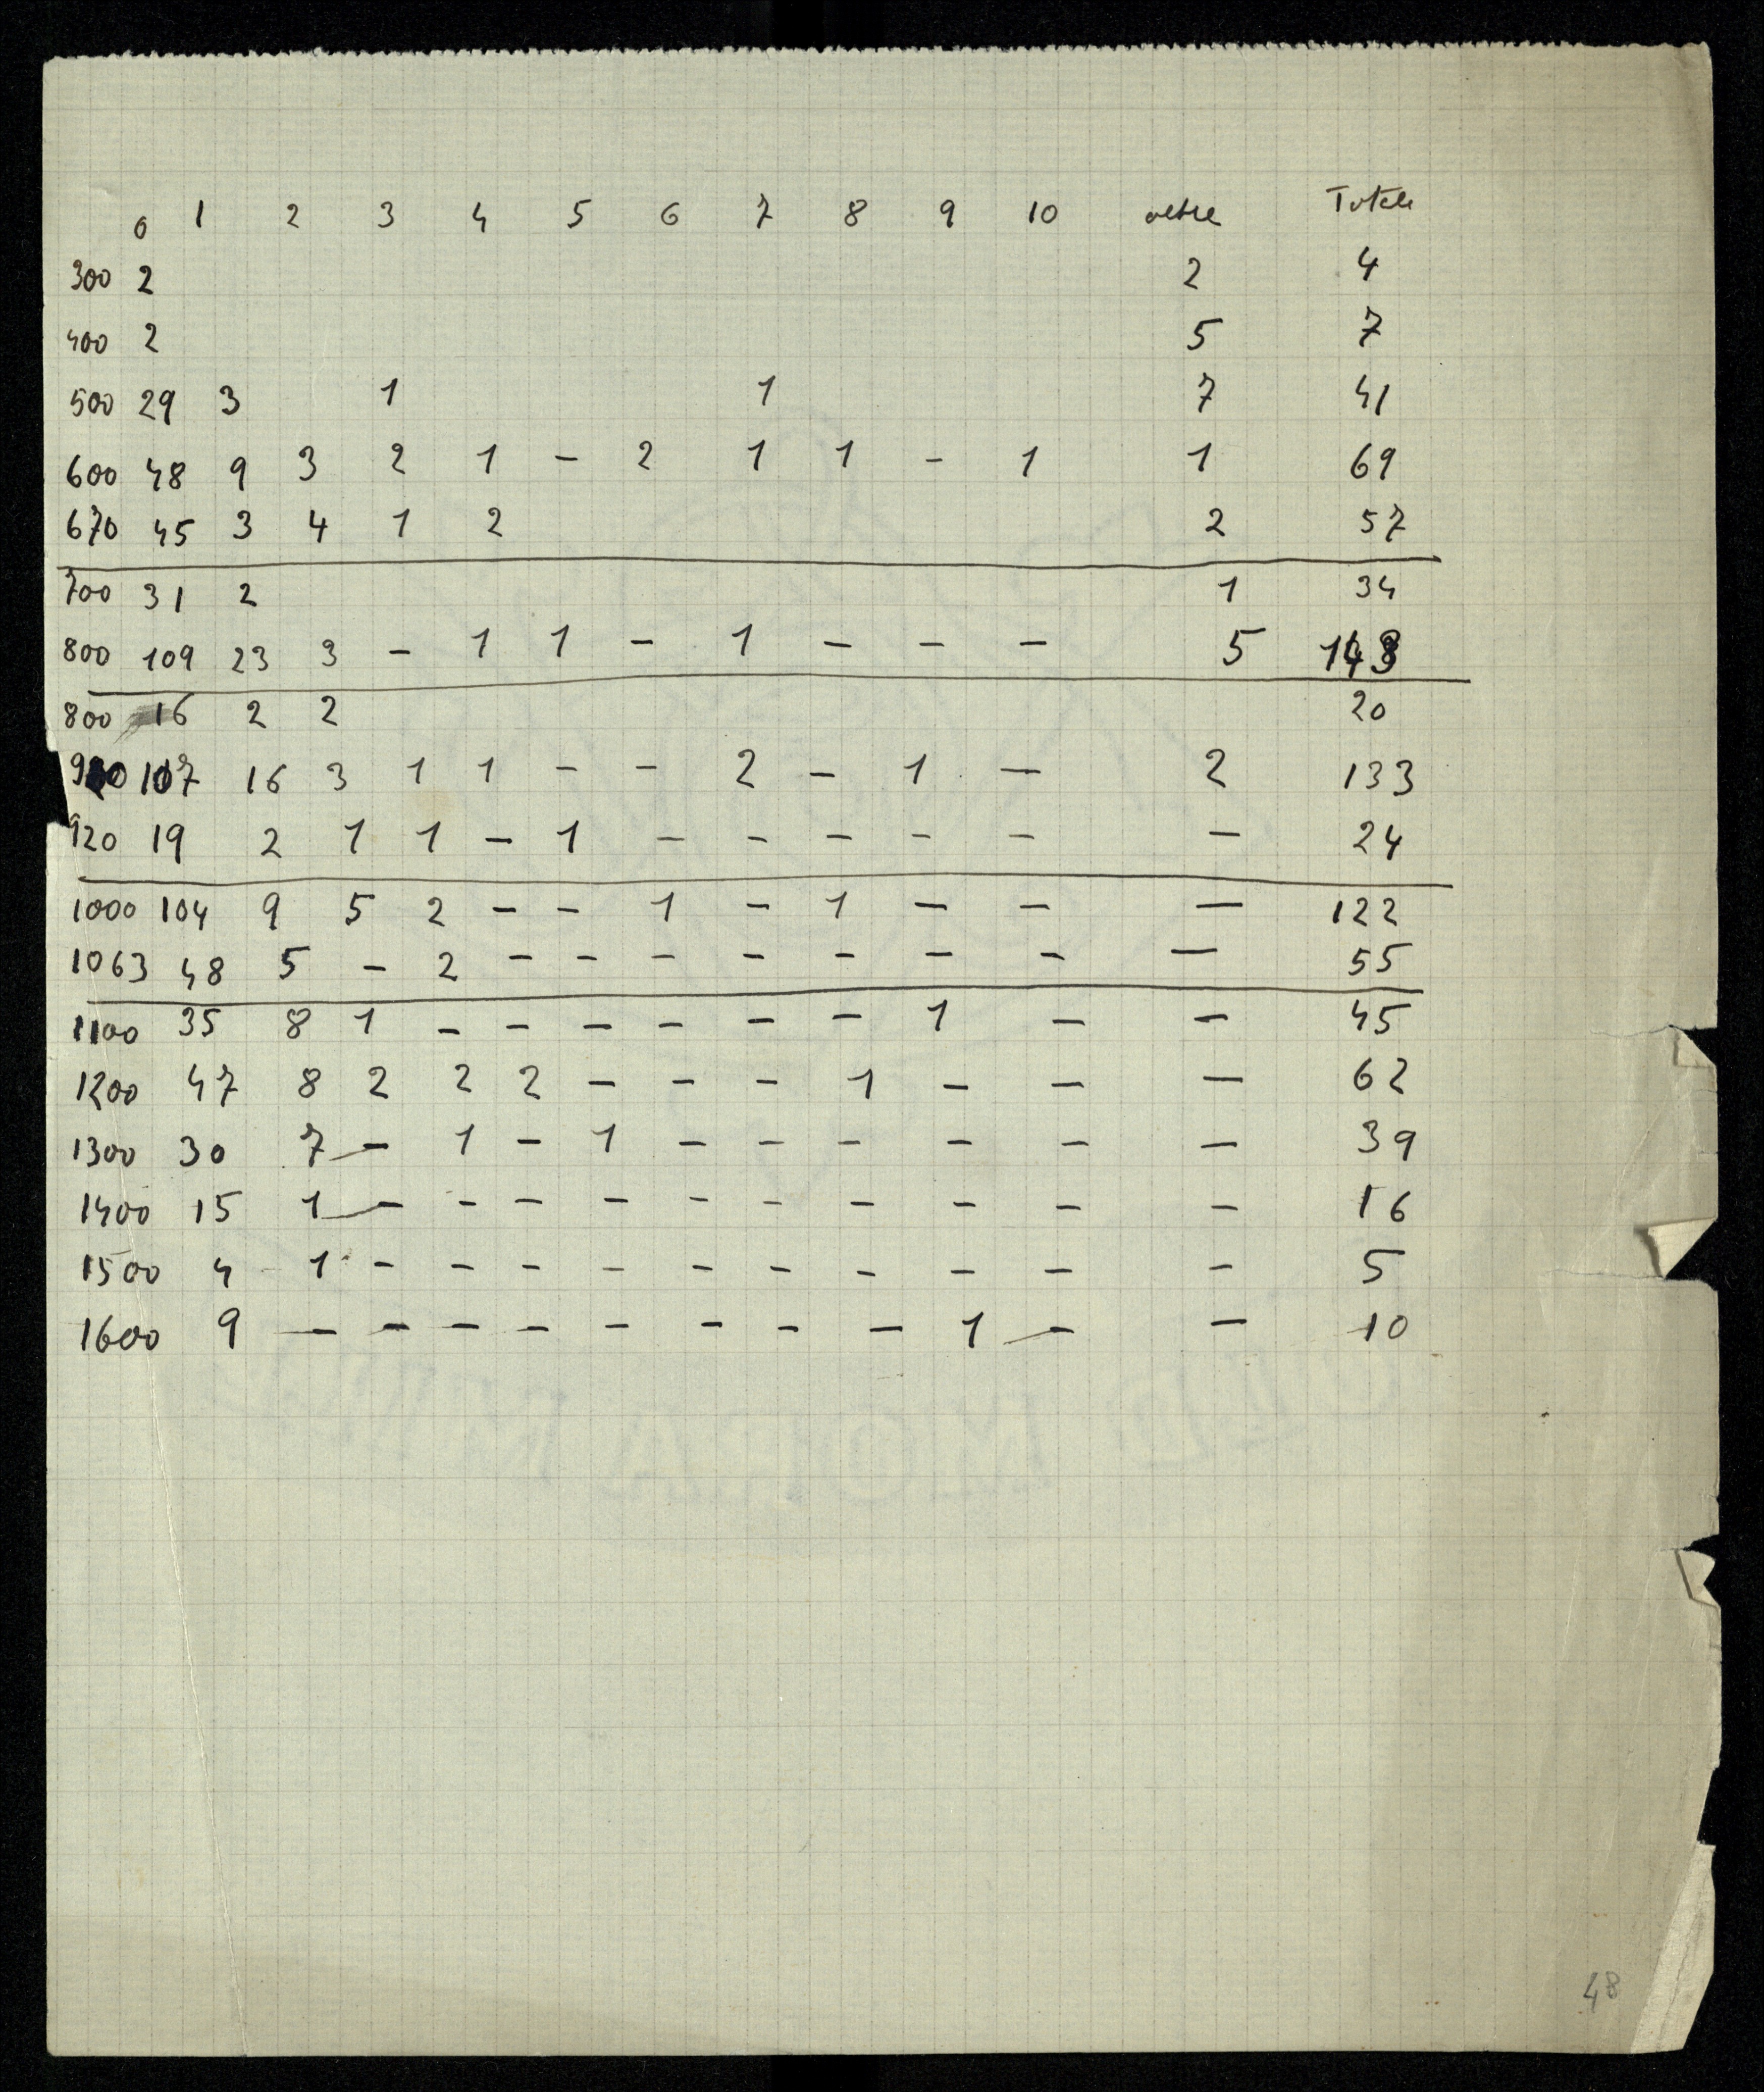 0 1 2 3 4 5 6 7 8 9 10 oltre Totale
300 2 2 4
400 2 5 7
500 29 3 1 1 7 41
600 48 9 3 2 1 - 2 1 1 - 1 1 69
670 45 3 4 1 2 2 57
700 31 2 1 34
800 109 23 3 - 1 1 - 1 - - - 5 143
800 16 2 2 20
900 107 16 3 1 1 - - 2 - 1 - 2 133
920 19 2 1 1 - 1 - - - - - - 24
1000 104 9 5 2 - - 1 - 1 - - - 122
1063 48 5 - 2 - - - - - - - - 55
1100 35 8 1 - - - - - - 1 - - 45
1200 47 8 2 2 2 - - - 1 - - - 62
1300 30 7 - 1 - 1 - - - - - - 39
1400 15 1 - - - - - - - - - - 16
1500 4 1 - - - - - - - - - - 5
1600 9 - - - - - - - - 1 - - 10
48